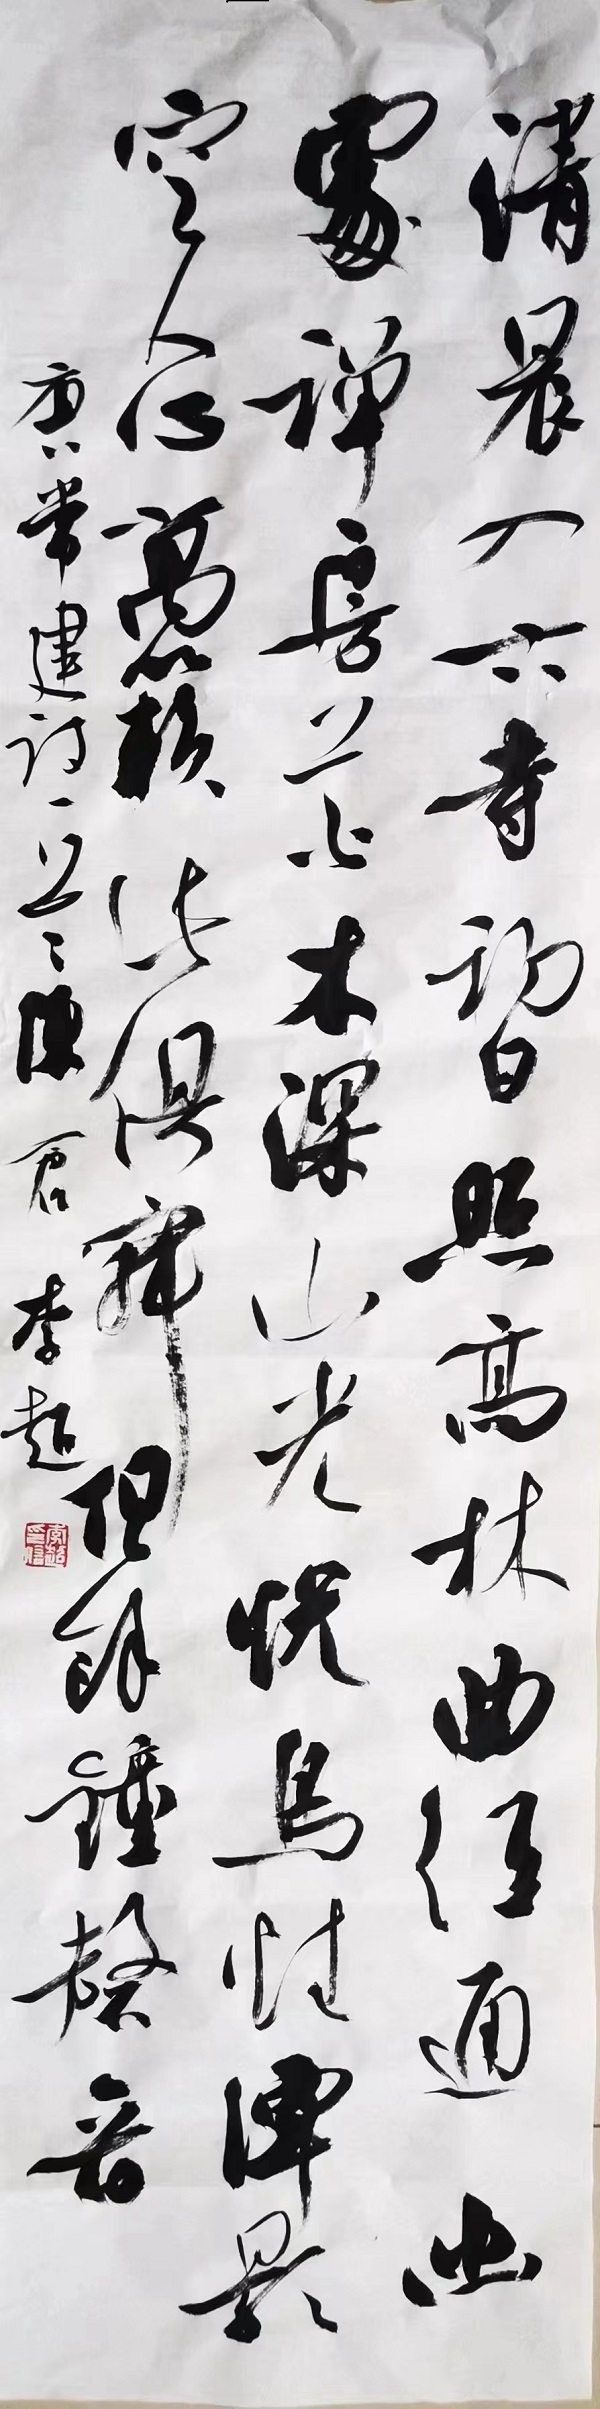 清晨入古寺初日照高林曲径通幽
處禅房花木深山光悦鸟性潭影
空人心萬籁此俱寂但余鐘磬音
唐常建诗一首陳倉李超
李超印信